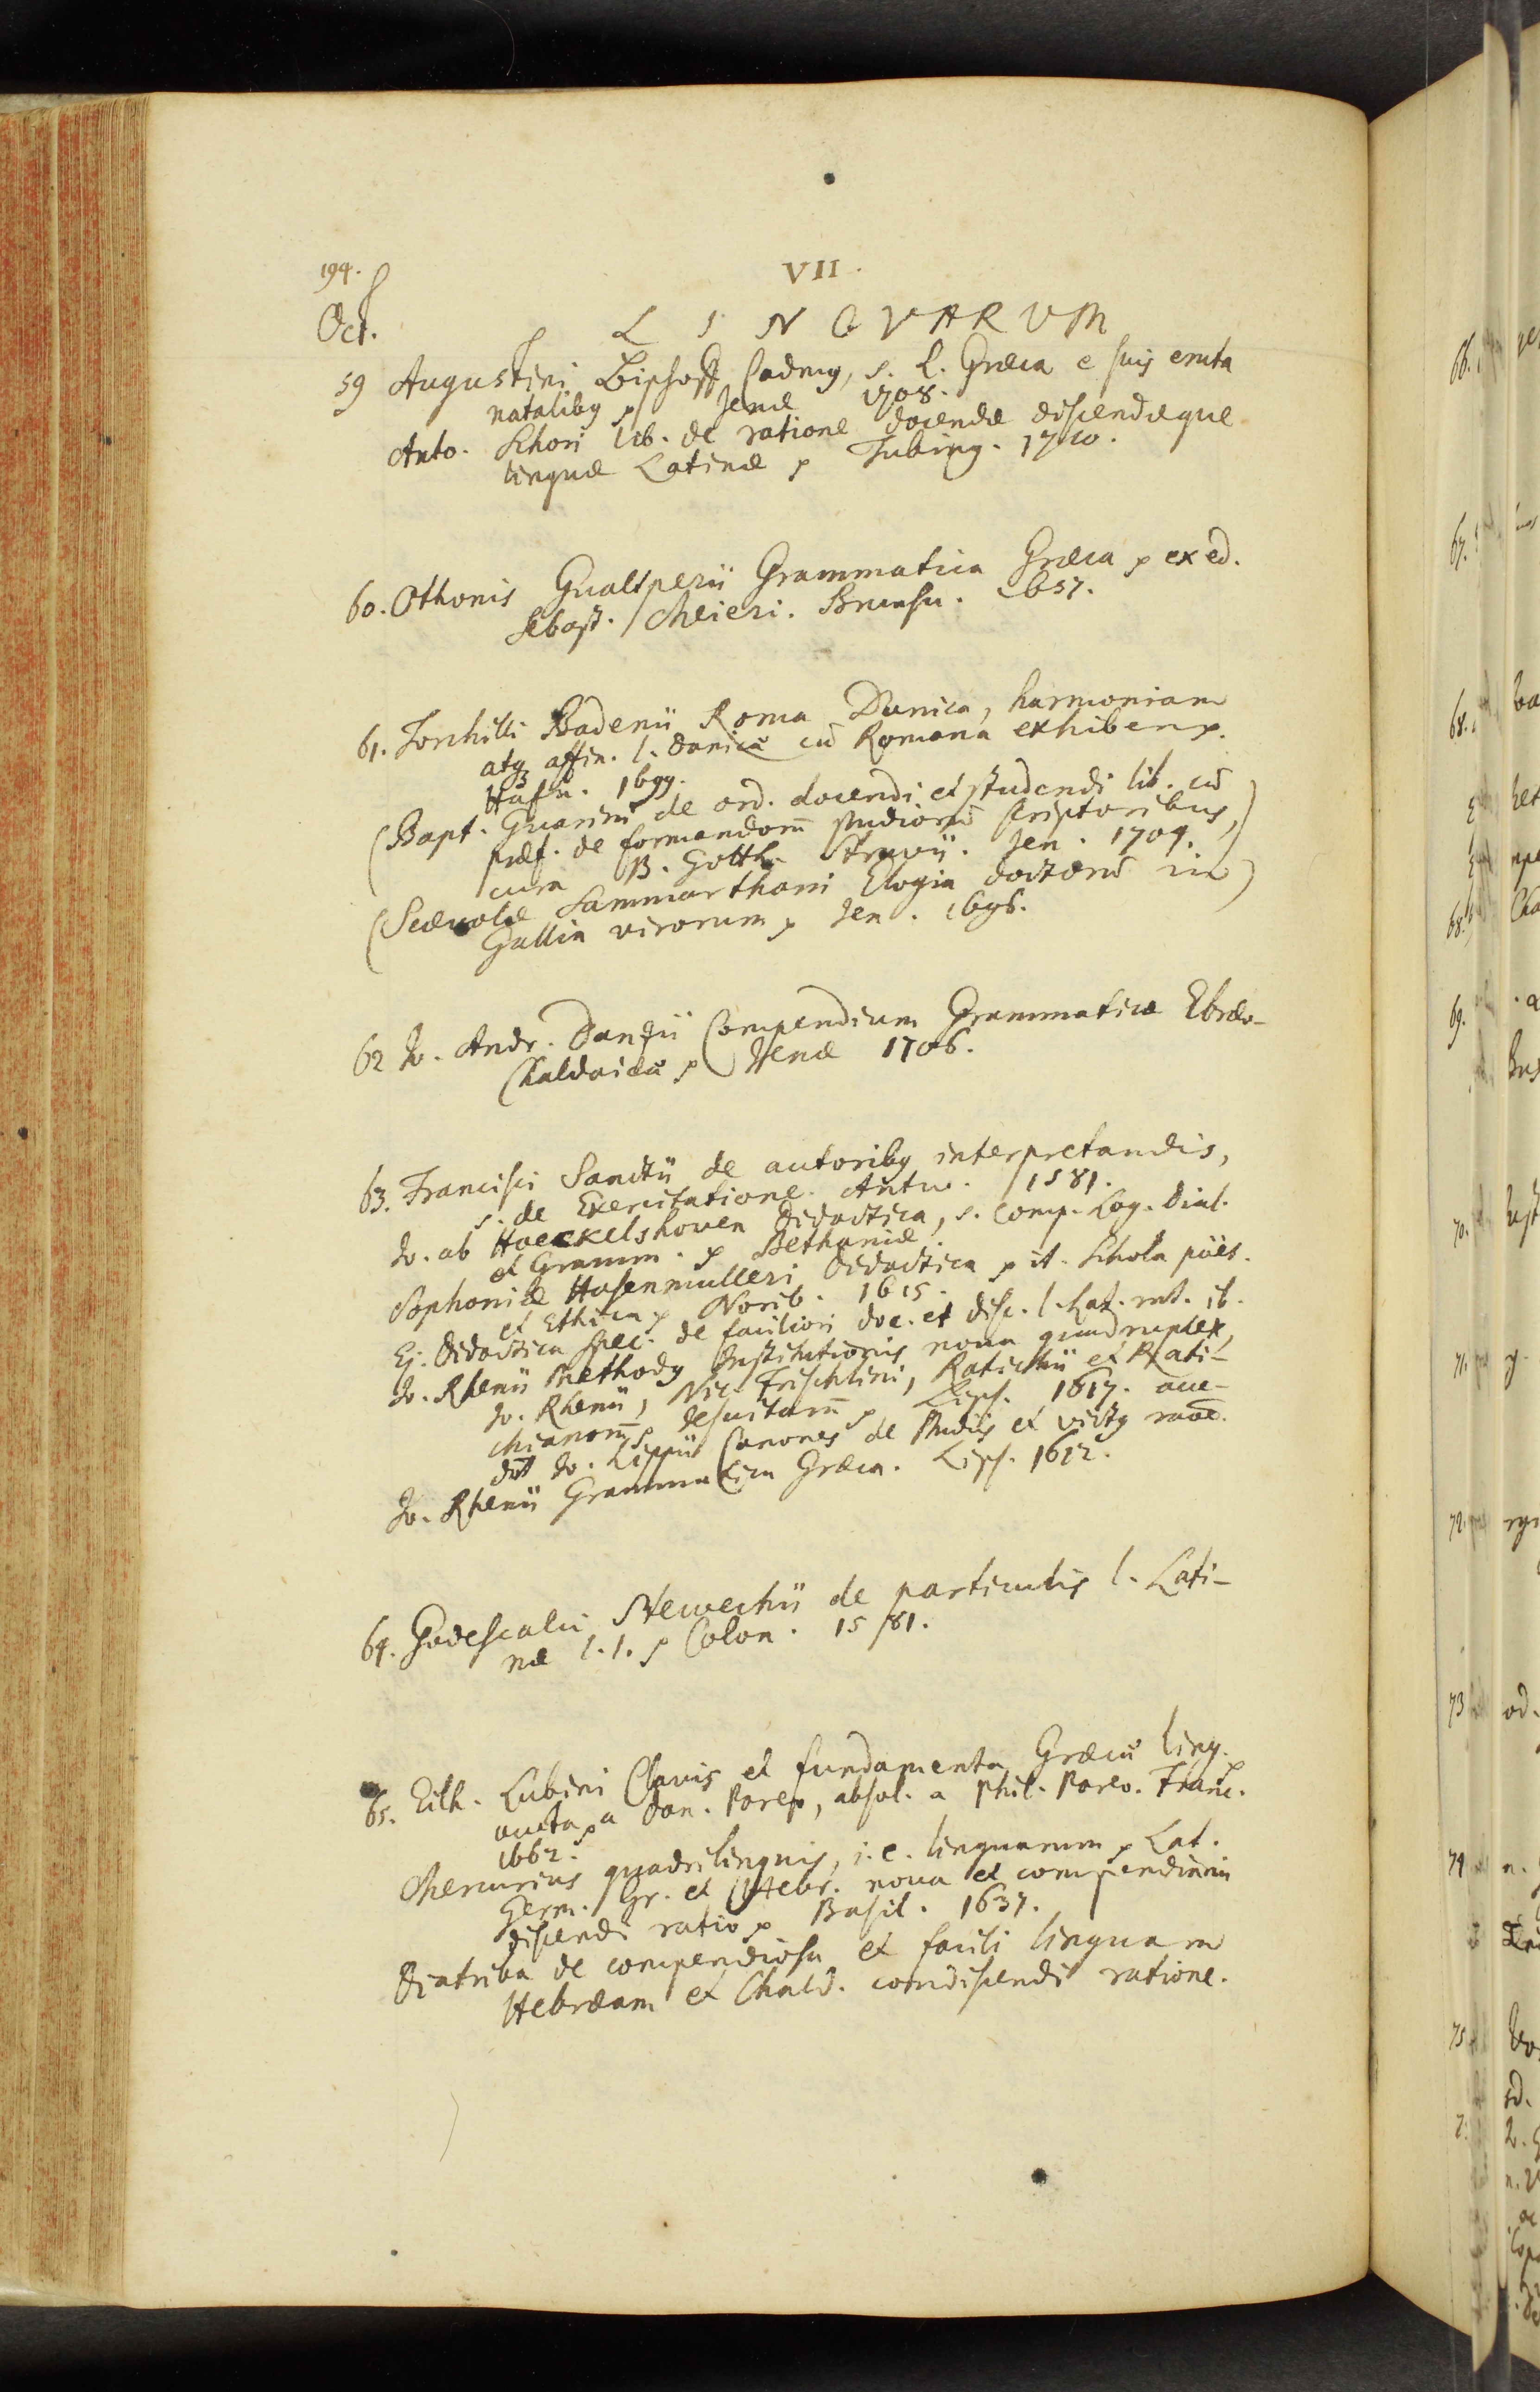 194.
VII.
Oct.
LINGVARUM
59 Augustini Bischoff Cadmg, s. L. Græca e suis eruta
natalibg p Jenæ 1708.
Anto. Schori lib. de ratione docendæ discendæque
linguæ Latinæ p Tubing. 1710.
60. Othonis Gualtperii Grammatica Græca p ex ed.
Sebast. Meieri. Brunsu. 1657.
61. Torchilli Badenii Roma Danica, harmoniam
atq affin. l. Danicæ cū Romana exhibens p.
Hafn. 1699.
(Bapt. Guarini de ord. docendi et studendi lib. cū
præf. de formandorū studiorū scriptoribus,
cura B. Gotth. Struvii. Jen. 1704.)
(Scævolæ Sammarthani Elogia doctorū in
Gallia virorum p Jen. 1696.)
62 Jo. Andr. Danzii Compendium Grammaticæ Ebræo-
Chaldaicæ p Jenæ 1706.
63. Francisci Sanctii de autoribg interpretandis,
s. de Exercitatione. Antw. 1581.
Jo. ab Hoeckelshoven Didactica, s. Comp. Log. Dial.
et Gramm. p Bethaniæ.
Sophoniæ Hasenmulleri Didactica p it. Schola pões.
et Ethica p Norib. 1615.
Ej. Didactica Spec. de faciliori doc. et disc. l. Lat. rat. ib.
Jo. Rhenii Methodg Institutionis nova quadruplex,
Jo. Rhenii, Nic. Frischlini, Ratichii et Rati-
chianorū, Jesuitarū p Lips. 1617. acce-
dūt Jo. Lippii Canones de studiis et victg raōe.
Jo. Rhenii Grammatica Græca. Lips. 1612.
64. Godescalci Stewechii de particulis l. Lati-
næ l. 1. p Colon. 1581.
65. Eilh. Lubini Clavis et fundamenta Græcæ ling. p
aucta p a Dan. Pareo, absol. a Phil. Pareo. Franc.
1662.
Mercurius quadrilinguis, i. e. linguarum p Lat.
Germ. Gr. et Hebr. nova et compendiaria
discendi ratio p Basil. 1637.
Diatriba de compendiosa et facili linguam
Hebræam et Chald. condiscendi ratione.
66.
67.
68.
69.
70.
71.
72.
73
74
75